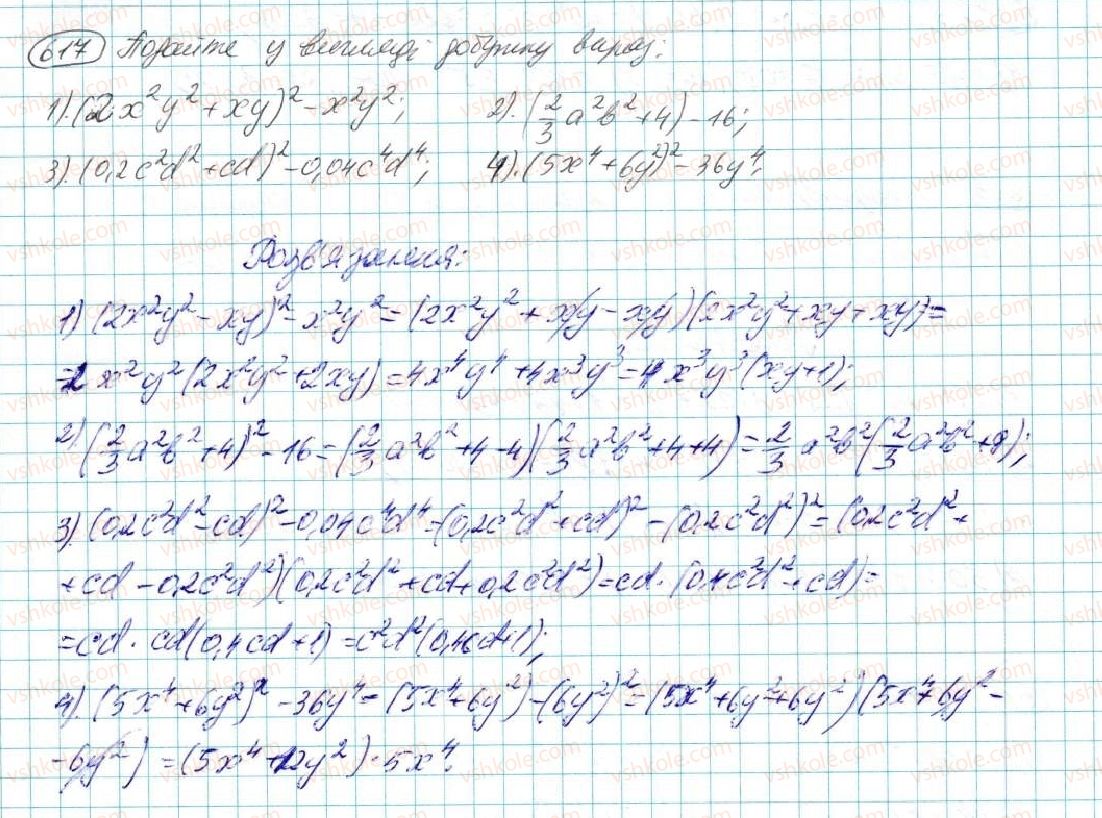 617 Подайте у вигляді добутку вираз:
1). (2x²y² + xy)² - x²y²; 2). (2/3 a²b² + 4) - 16;
3). (0,2c²d² + cd)² - 0,04c⁴d⁴; 4). (5x⁴ + 6y²)² = 36y⁴.
Розв'язання:
1) (2x²y² - xy)² - x²y² = (2x²y² + xy - xy)(2x²y² + xy + xy) =
= 2x²y²(2x²y² + 2xy) = 4x⁴y⁴ + 4x³y³ = 4x³y³(xy+1);
2) (2/3 a²b² + 4)² - 16 = (2/3 a²b² + 4 - 4)(2/3 a²b² + 4 + 4) = 2/3 a²b²(2/3 a²b² + 8);
3). (0,2c²d² - cd)² - 0,04c⁴d⁴ = (0,2c²d² + cd)² - (0,2c²d²)² = (0,2c²d² +
+ cd - 0,2c²d²)(0,2c²d² + cd + 0,2c²d²) = cd · (0,4c²d² + cd) =
= cd · cd(0,4cd + 1) = c²d²(0,4cd+1);
4). (5x⁴ + 6y²)² - 36y⁴ = (5x⁴ + 6y²) - (6y²)² = (5x⁴ + 6y² + 6y²)(5x⁴ + 6y² -
- 6y²) = (5x⁴ + 12y²) · 5x⁴.
vshkole.com